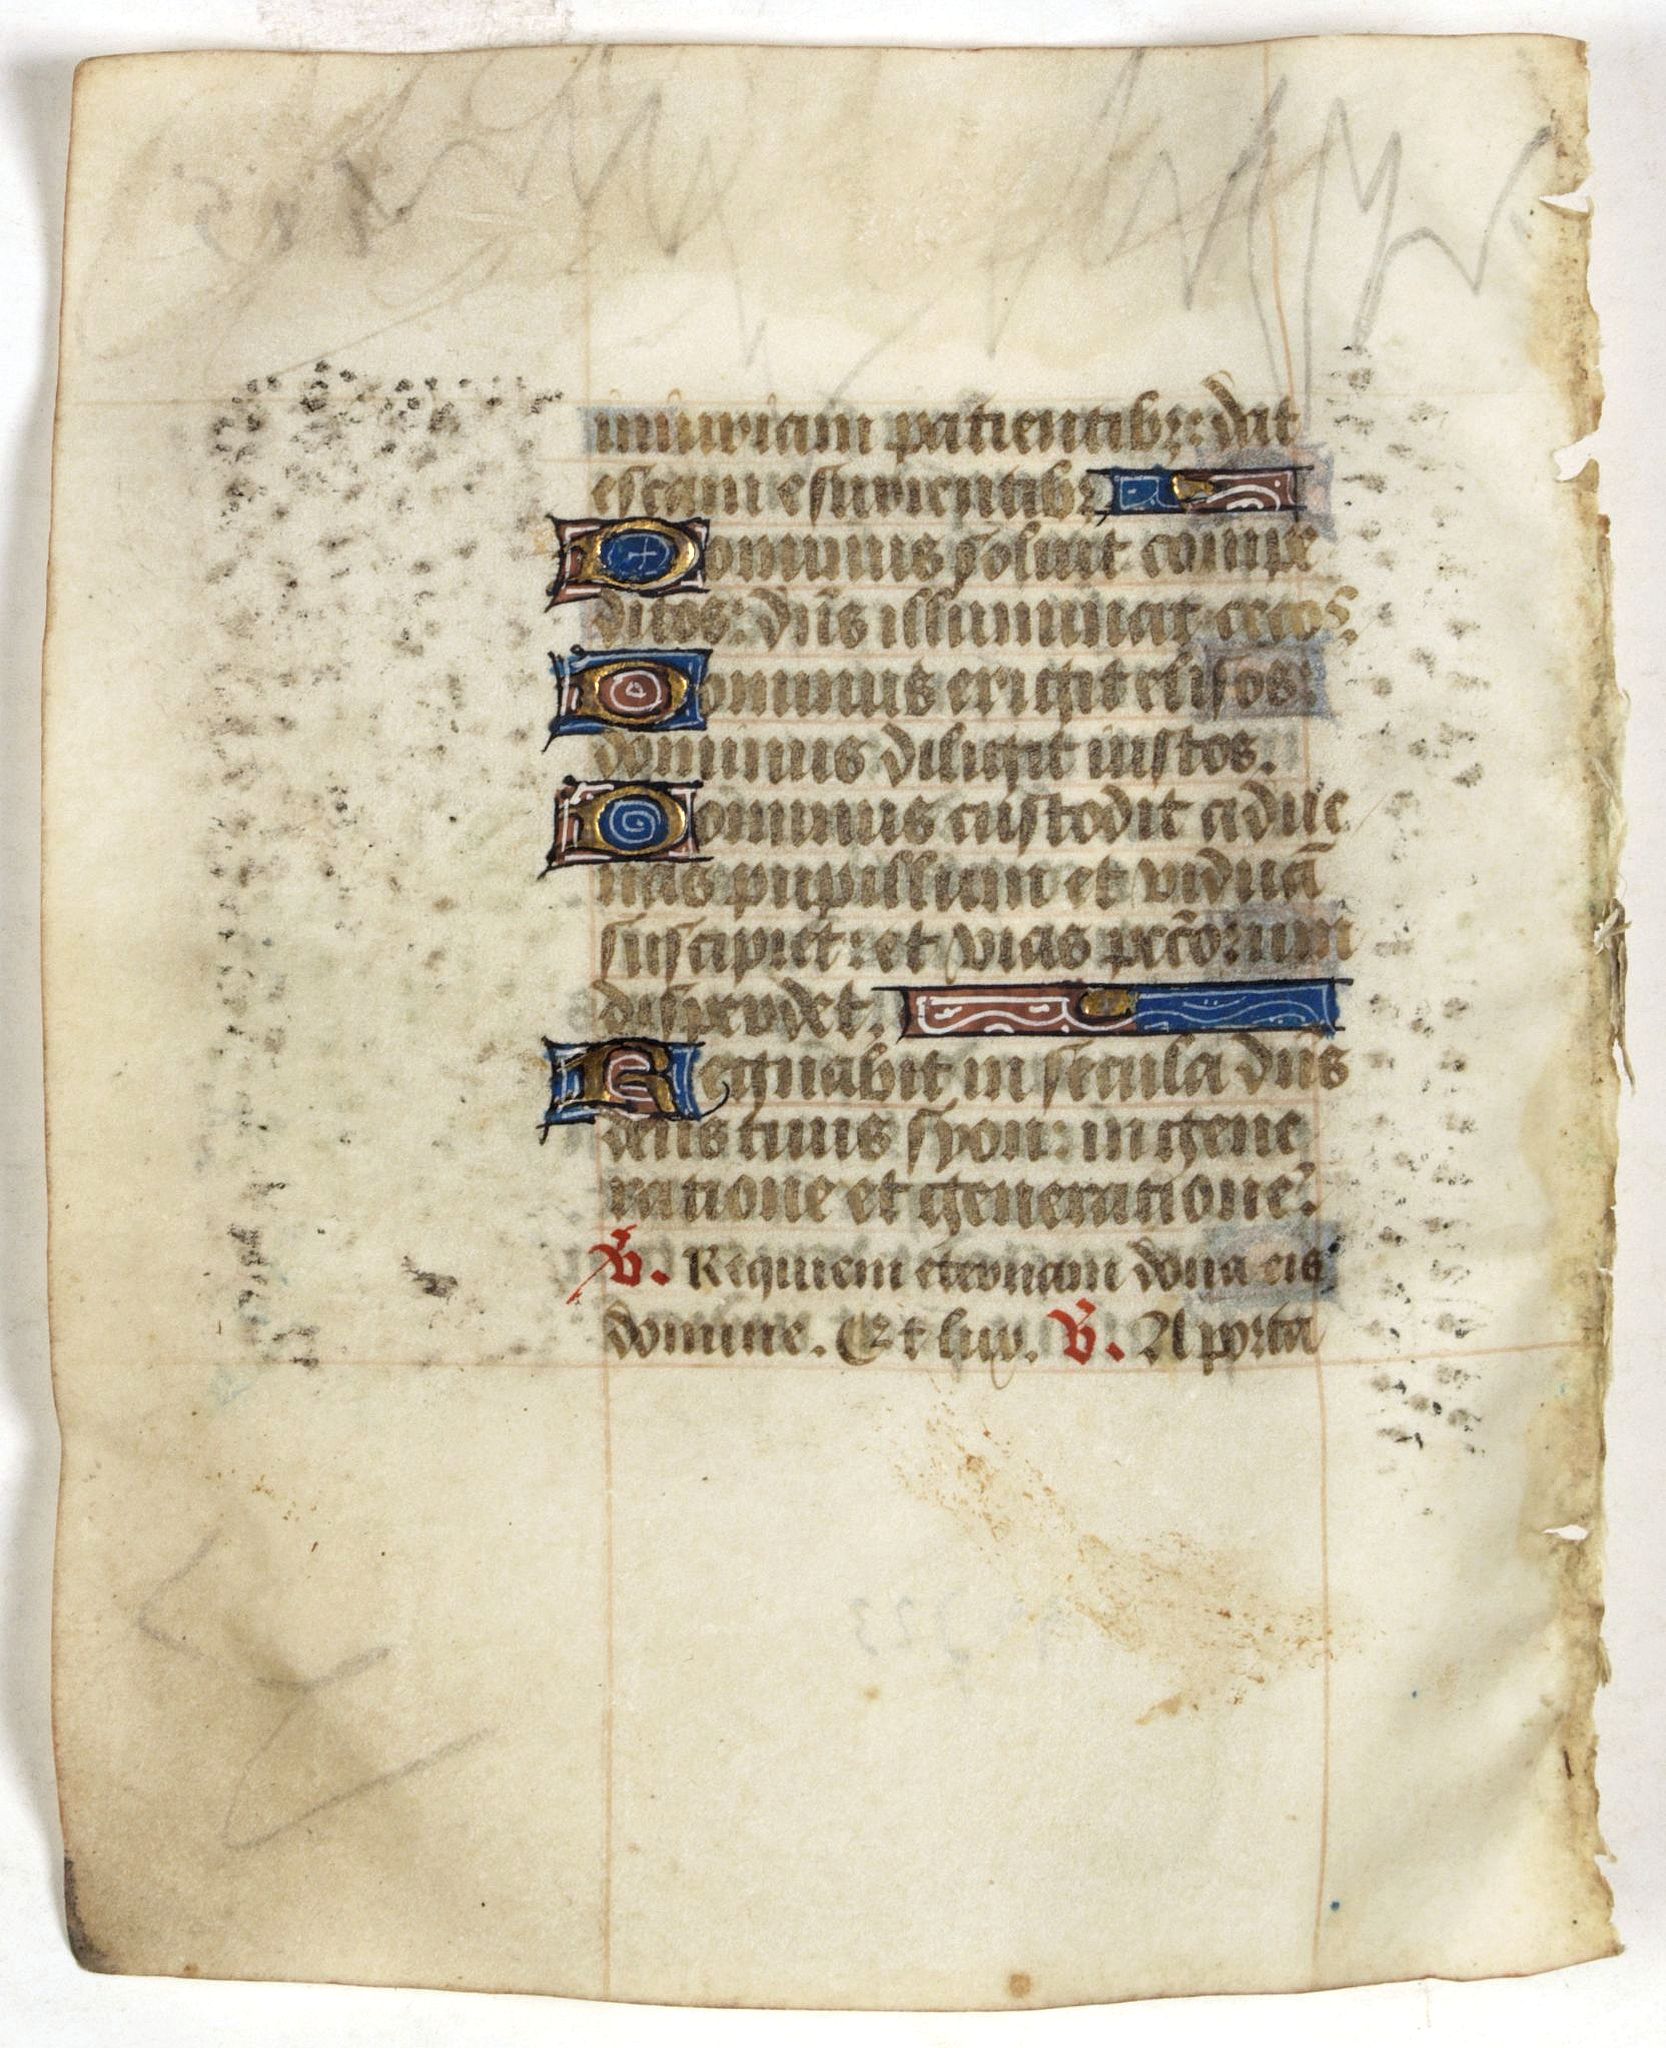 iniuriam patientibꝫ: dat
escam esurientibꝫ
Dominus soluit compe
ditos: dn̄s illuminat cecos.
Dominus erigit elisos:
dominus diligit iustos.
Dominus custodit adue
nas pupillum et viduā
suscipiet: et vias pct̄orum
disperdet.
Regnabit in secula dn̄s
deus tuus syon: in gene
ratione et generatione.
℣. Requiem eternam dona eis
domine. Et lux. ℣. A porta